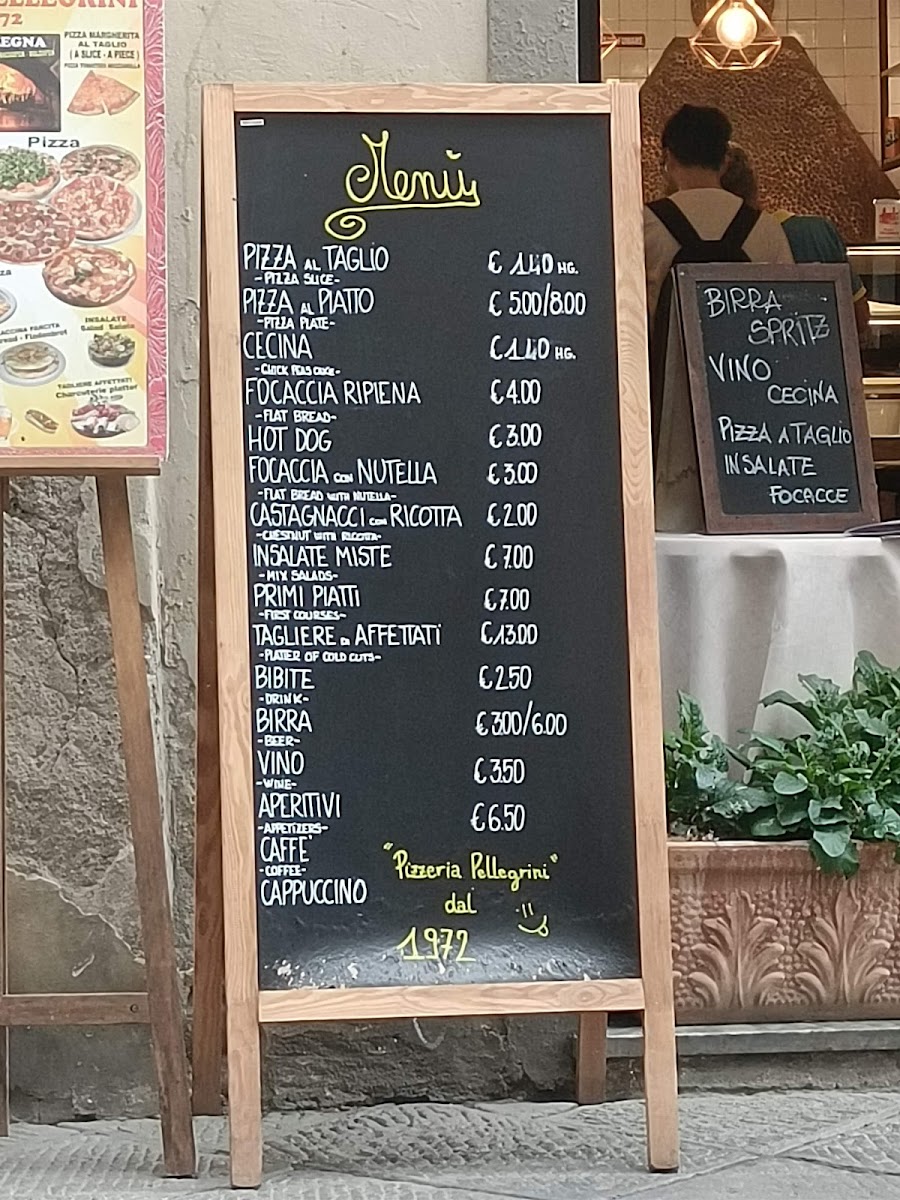 PELLEGRINI
972
LEGNA
PIZZA MARGHERITA
AL TAGLIO
( A SLICE - A PIECE )
PIZZA TOMATOES MOZZARELLA
Pizza
INSALATE
Salad - Salate
TAGLIERE AFFETTATI
Charcuterie platter
Menù
PIZZA AL TAGLIO € 1.40 HG.
-PIZZA SLICE-
PIZZA AL PIATTO € 5.00/8.00
-PIZZA PLATE-
CECINA € 1.40 HG.
-CHICK PEAS CAKE-
FOCACCIA RIPIENA € 4.00
-FLAT BREAD-
HOT DOG € 3.00
FOCACCIA CON NUTELLA € 3.00
-FLAT BREAD WITH NUTELLA-
CASTAGNACCI CON RICOTTA € 2.00
-CHESTNUT WITH RICOTTA-
INSALATE MISTE € 7.00
-MIX SALADS-
PRIMI PIATTI € 7.00
-FIRST COURSES-
TAGLIERE DI AFFETTATI € 13.00
-PLATTER OF COLD CUTS-
BIBITE € 2.50
-DRINK-
BIRRA € 3.00/6.00
-BEER-
VINO € 3.50
-WINE-
APERITIVI € 6.50
-APPETIZERS-
CAFFE'
-COFFEE-
CAPPUCCINO
"Pizzeria Pellegrini"
dal
1972
BIRRA
SPRITZ
VINO
CECINA
PIZZA A TAGLIO
INSALATE
FOCACCE